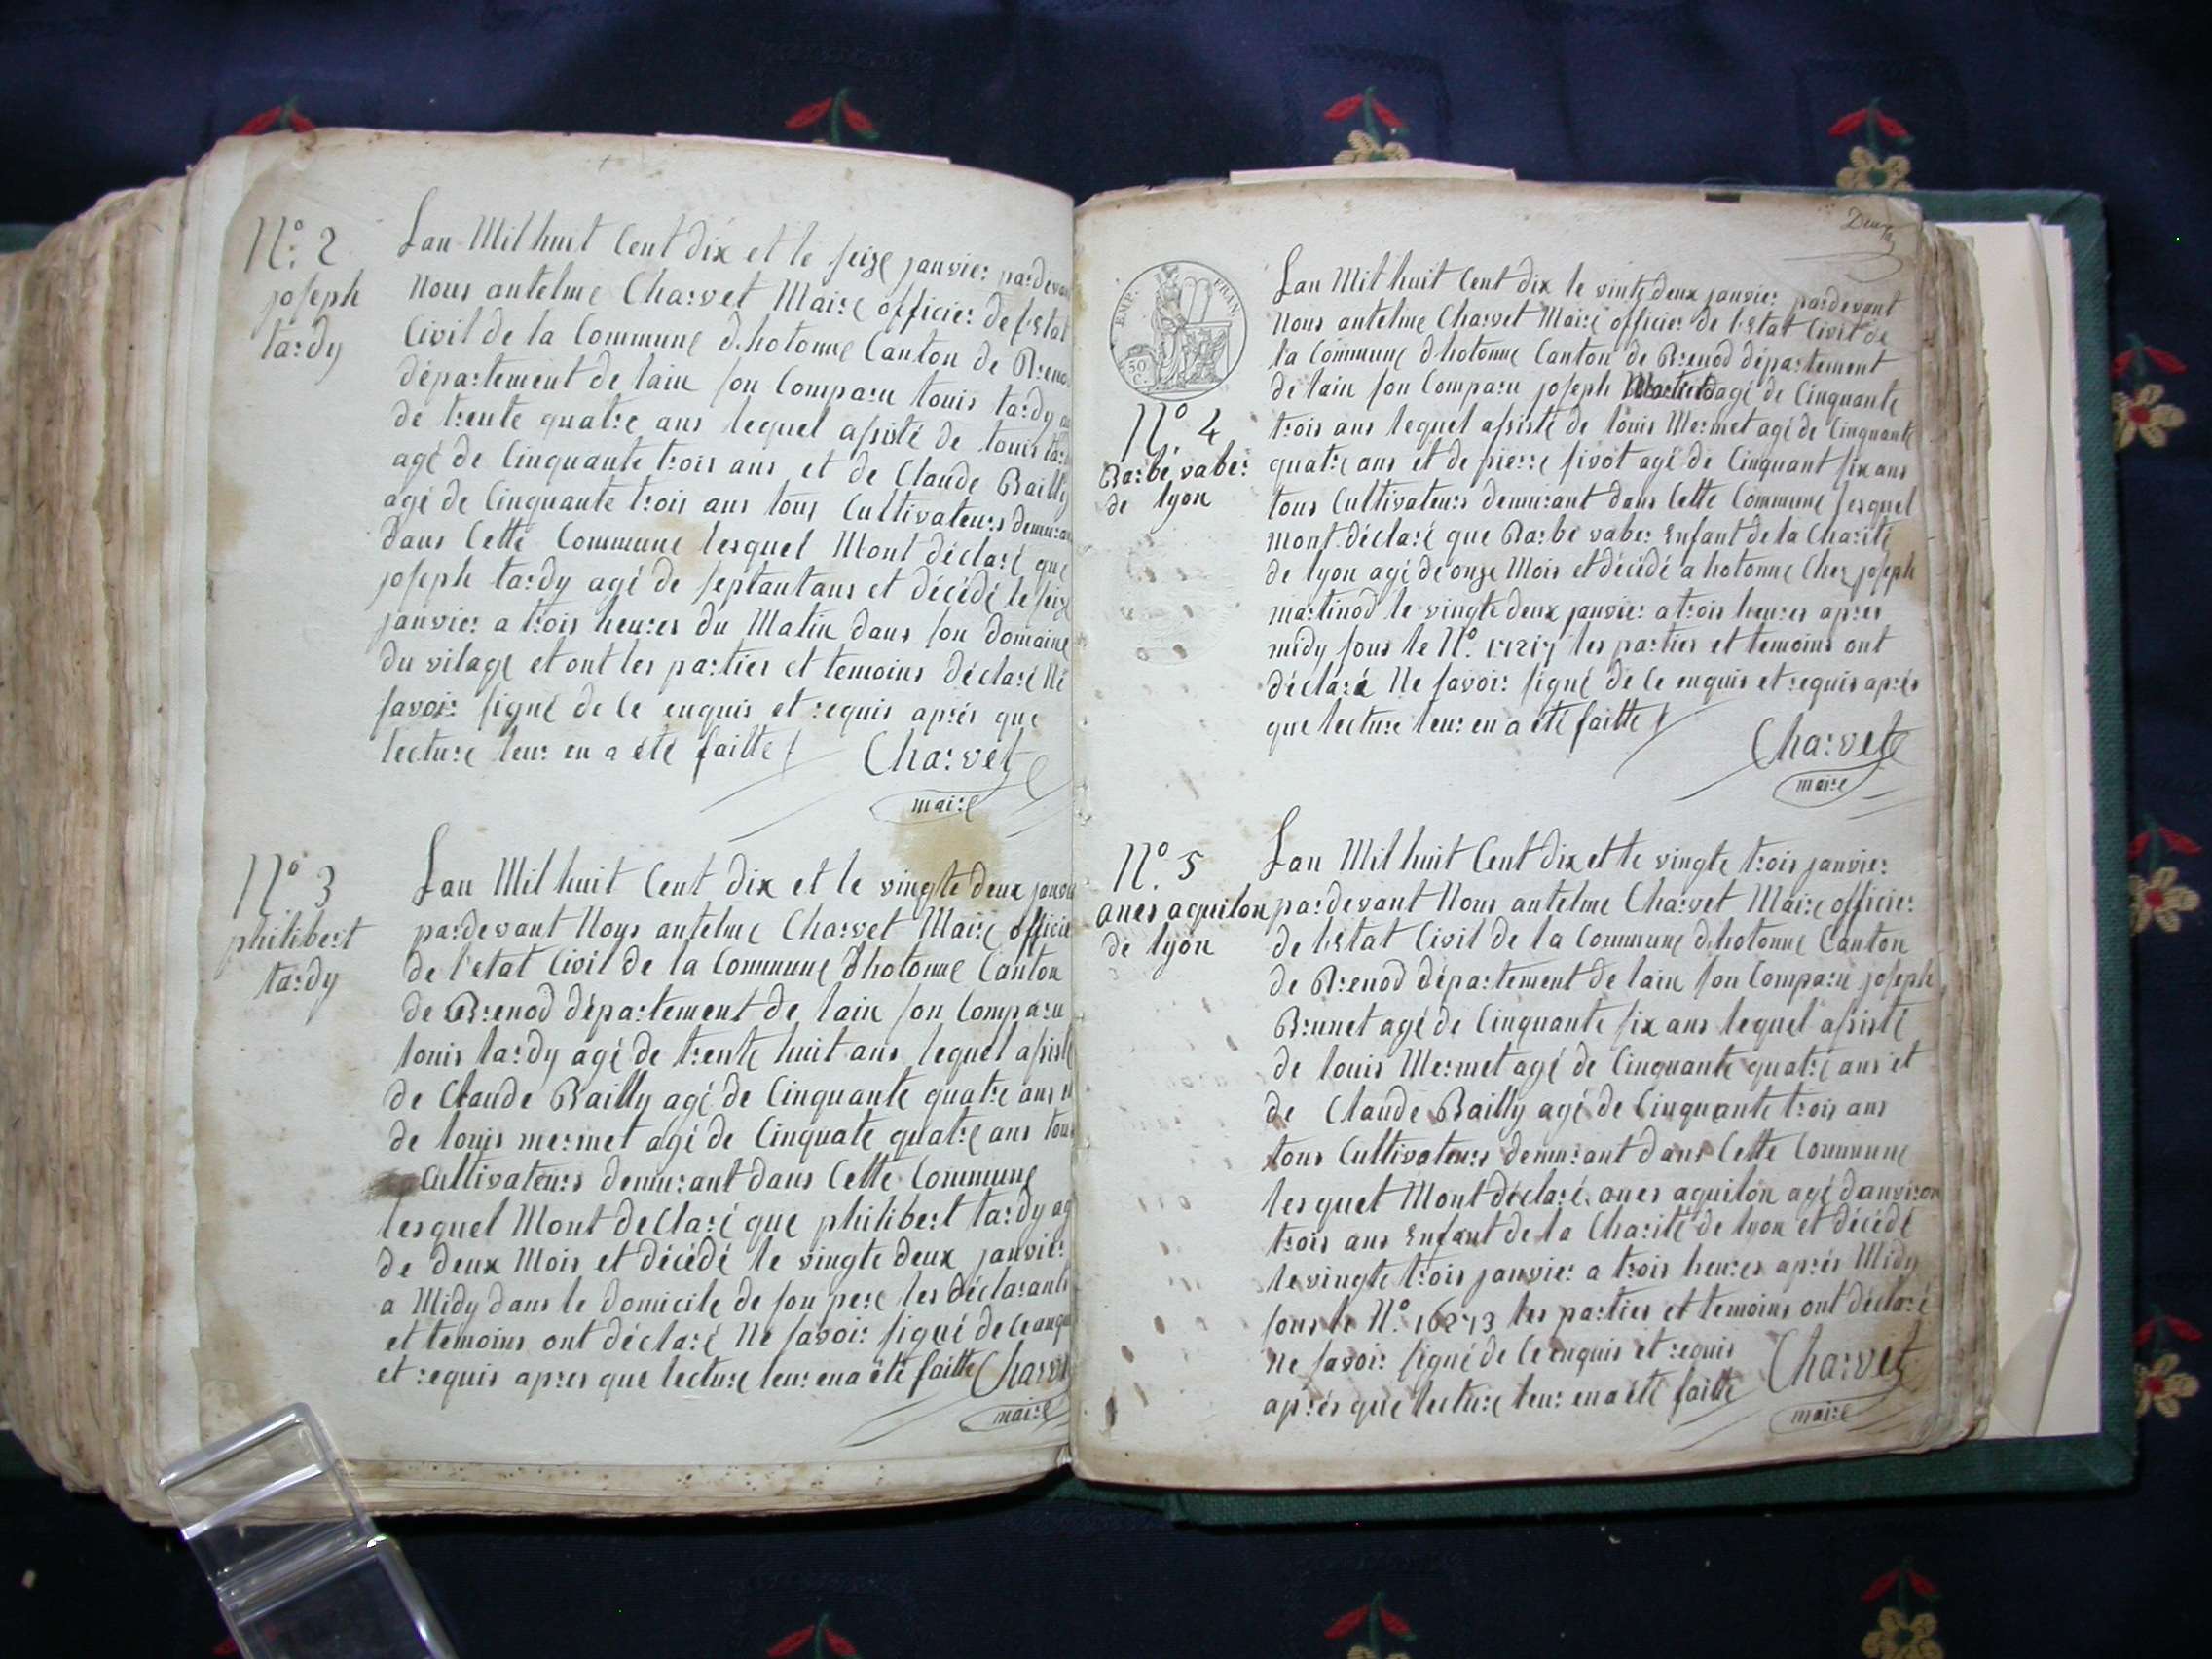 N.º 2
joseph
tardy
Lan Mil huit Cent dix et le seize janvier pardevant
Nous antelme Charvet Maire officier de l'Etat
Civil de la Commune d'hotonne Canton de Brenod
département de lain son Comparu louis tardy
de trente quatre ans lequel assisté de louis tardy
agé de Cinquante trois ans et de Claude Bailly
agé de Cinquante trois ans tous Cultivateurs demurant
dans Cette Commune lesquel Mont déclaré que
joseph tardy agé de septantans et décédé le seize
janvier a trois heures du Matin dans son domaine
du vilage et ont les parties et temoins déclaré Ne
savoir signé de Ce enquis et requis aprés que
lecture leur en a été faitte
Charvet
maire
N.º 3
philibert
tardy
Lan Mil huit Cent dix et le vingte deux janvier
pardevant Nous antelme Charvet Maire officier
de l'etat Civil de la Commune d'hotonne Canton
de Brenod département de lain son Comparu
louis tardy agé de trente huit ans lequel assisté
de Claude Bailly agé de Cinquante quatre ans et
de louis mermet agé de Cinquate quatre ans tous
Cultivateurs demurant dans Cette Commune
lesquel Mont declaré que philibert tardy agé
de deux Mois et décédé le vingte deux janvier
a Midy dans le domicile de son pere les déclarants
et temoins ont déclaré Ne savoir signé de Ce anquis
et requis apres que lecture leur ena été faitte Charvet
maire
Deux
EMP. FRAN.
50 C.
N.º 4
Barbé vaber
de lyon
Lan Mil huit Cent dix le vinte deux janvier pardevant
Nous antelme Charvet Maire officier de l'Etat Civil de
la Commune d'hotonne Canton de Brenod département
de lain son Comparu joseph Martinod agé de Cinquante
trois ans lequel assisté de louis Mermet agé de Cinquante
quatre ans et de pierre sivot agé de Cinquant six ans
tous Cultivateurs demurant dans Cette Commune lesquel
mont déclaré que Barbé vaber Enfant de la Charité
de lyon agé de onze Mois et décédé a hotonne Chez joseph
martinod le vingte deux janvier a trois heures apres
midy sous le N.º 17217 les parties et temoins ont
déclaré Ne savoir signé de Ce enquis et requis aprés
que lecture leur en a été faitte
Charvet
maire
N.º 5
anes aquilon
de lyon
Lan Mil huit Cent dix et le vingte trois janvier
pardevant Nous antelme Charvet Maire officier
de l'Etat Civil de la Commune d'hotonne Canton
de Brenod département de lain son Comparu joseph
Brunet agé de Cinquante six ans lequel assisté
de louis Mermet agé de Cinquante quatre ans et
de Claude Bailly agé de Cinquante trois ans
tous Cultivateurs demurant dans Cette Commune
lesquel Mont déclaré anes aquilon agé danviron
trois ans Enfant de la Charité de lyon et décédé
le vingte trois janvier a trois heures aprés Midy
sous le N.º 16273 les parties et temoins ont déclaré
ne savoir signé de Ce enquis et requis
aprés que lecture leur en a été faitte
Charvet
maire